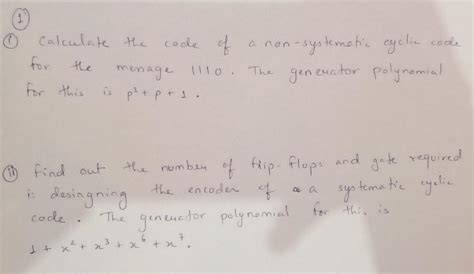 1
(i) Calculate the code of a non-systematic cyclic code
for the message 1110. The generator polynomial
for this is p³ + p + 1.
(ii) Find out the number of flip-flops and gate required
is desingning the encoder of a a systematic cyclic
code. The generator polynomial for this is
1 + x² + x³ + x⁶ + x⁷.